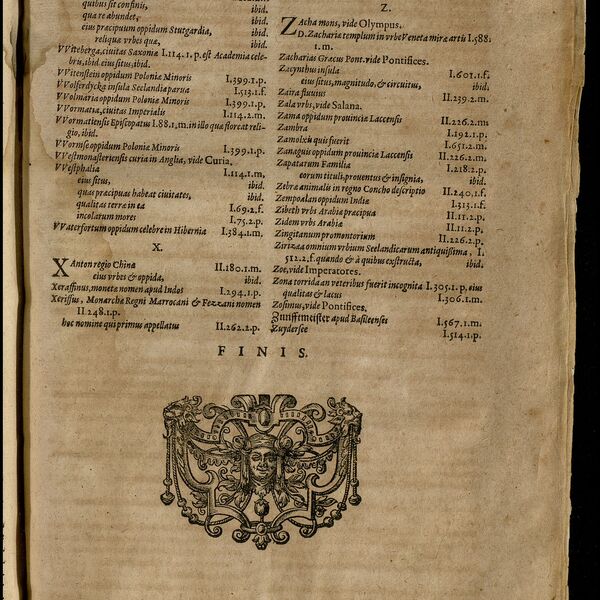 quibus sit confinis, ibid.
qua re abundet, ibid.
eius præcipuum oppidum Stutgardia, ibid.
reliquæ vrbes quæ, ibid.
VViteberga, ciuitas Saxoniæ I.114.1.p. est Academia cele-
bris, ibid. eius situs, ibid.
VVitenstein oppidum Poloniæ Minoris I.399.1.p.
VVolferdycka insula Seelandiæ parua I.513.1.f.
VVolmaria oppidum Poloniæ Minoris I.399.1.p.
VVormatia, ciuitas Imperialis I.114.2.m.
VVormatiensis Episcopatus I.88.1.m. in illo quæ floreat reli-
gio, ibid.
VVormse oppidum Poloniæ Minoris I.399.1.p.
VVestmonasteriensis curia in Anglia, vide Curia.
VVestphalia I.114.1.m,
eius situs, ibid.
quas præcipuas habeat ciuitates, ibid.
qualitas terræ in ea I.69.2.f.
incolarum mores I.75.2.p.
VVaterfortum oppidum celebre in Hibernia I.384.1.m.
X.
XAnton regio Chinæ II.180.1.m.
eius vrbes & oppida, ibid.
Xeraffinus, monetæ nomen apud Indos I.294.1.p.
Xeriffius, Monarchæ Regni Marrocani & Fezzani nomen
II.248.1.p.
hoc nomine qui primus appellatus II.262.2.p.
Z.
ZAcha mons, vide Olympus.
D. Zachariæ templum in vrbe Veneta miræ artis I.588.
1.m.
Zacharias Græcus Pont. vide Pontifices.
Zacynthus insula I.601.1.f.
eius situs, magnitudo, & circuitus, ibid.
Zaira fluuius II.239.2.m.
Zala vrbs, vide Salana.
Zama oppidum prouinciæ Laccensis II.226.2.m.
Zambra I.192.1.p.
Zamolxis quis fuerit I.651.2.m.
Zanaguis oppidum prouinciæ Laccensis II.226.2.m.
Zapatarum Familia I.218.2.p.
eorum tituli, prouentus & insignia, ibid.
Zebræ animalis in regno Concho descriptio II.240.1.f.
Zempoalan oppidum Indiæ I.313.1.f.
Zibeth vrbs Arabiæ præcipua II.11.2.p.
Zidem vrbs Arabiæ II.11.2.p.
Zingitanum promontorium II.226.2.p.
Zirizæa omnium vrbium Seelandicarum antiquissima, I.
512.2.f. quando & à quibus exstructa, ibid.
Zoe, vide Imperatores.
Zona torrida an veteribus fuerit incognita I.305.1.p. eius
qualitas & lacus I.306.1.m.
Zosimus, vide Pontifices.
Zunffmeister apud Basileenses I.567.1.m.
Zuydersee I.514.1.p.
FINIS.